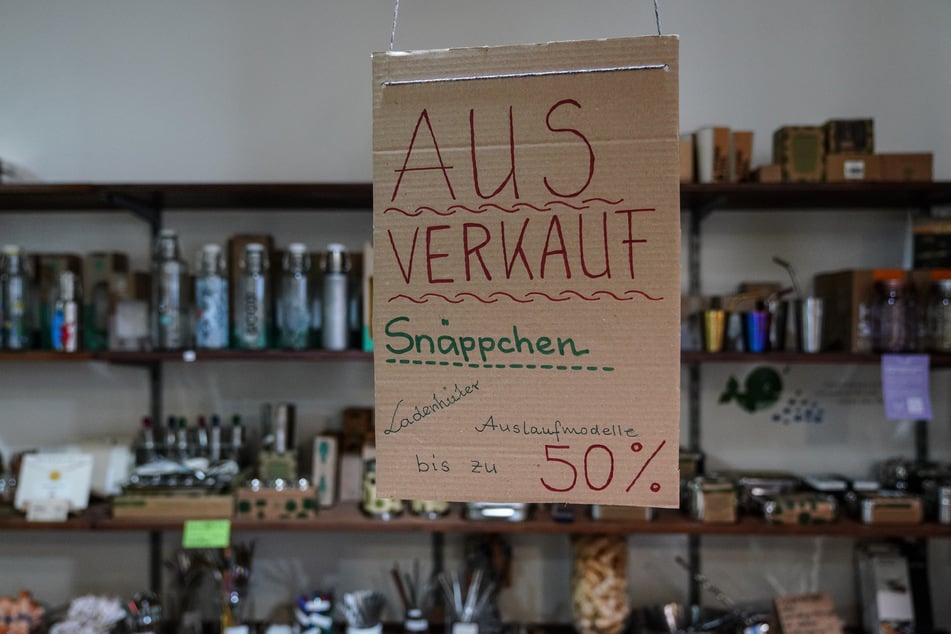 AUS
VERKAUF
Snäppchen
Ladenhüter
Auslaufmodelle
bis zu 50%